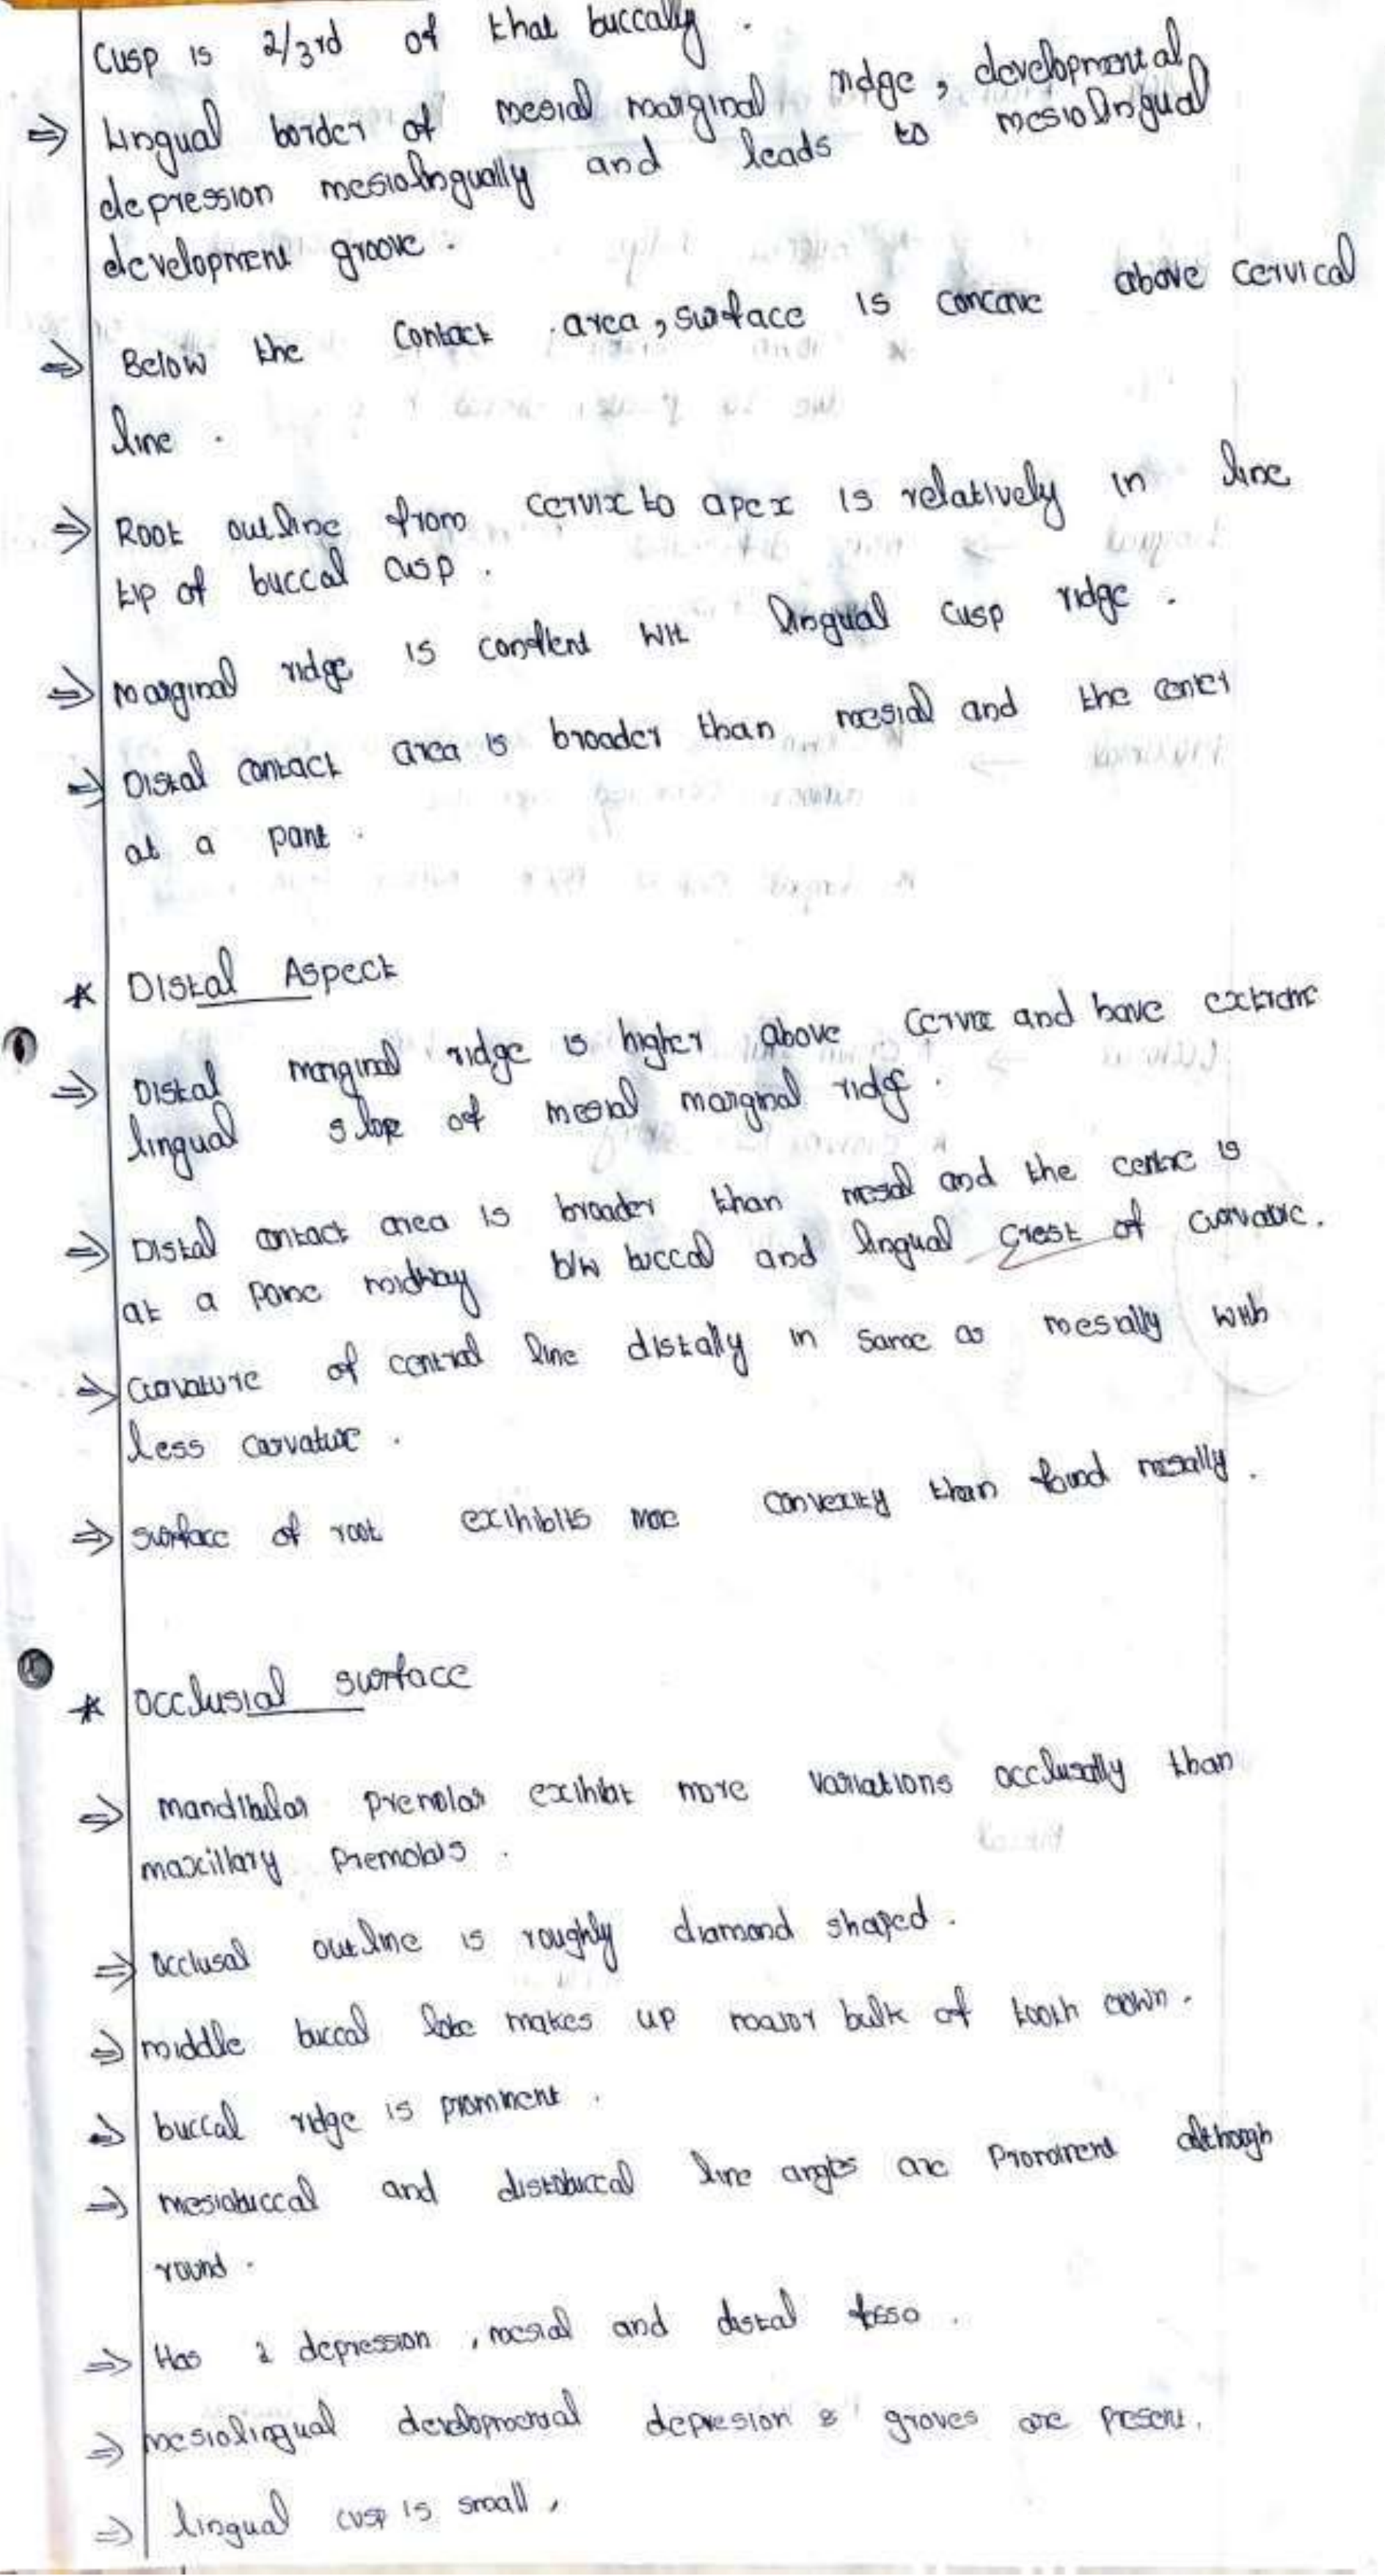 Cusp is 2/3rd of that buccally.
⇒ Lingual border of mesial marginal ridge, developmental
depression mesiolingually and leads to mesiolingual
development groove.
⇒ Below the contact area, surface is concave above cervical
line.
⇒ Root outline from cervix to apex is relatively in line
tip of buccal cusp.
⇒ marginal ridge is conflent wit lingual cusp ridge.
⇒ Distal contact area is broader than mesial and the
at a point.
* Distal Aspect
⇒ Distal marginal ridge is higher above cervix and have extreme
lingual slope of mesial marginal ridge.
⇒ Distal contact area is broader than mesial and the centre is
at a midway b/w buccal and lingual crest of curvature.
⇒ curvature of line distally in same as mesially with
less curvature.
⇒ surface of root exihibits more convexity than found mesially.
* occlusial surface
⇒ mandibular premolar exihibit more variations occlusally than
maxillary Premolars.
⇒ occlusal outline is roughly diamond shaped.
⇒ middle buccal lobe makes up major bulk of tooth crown.
⇒ buccal ridge is prominent.
⇒ mesiobuccal and distobuccal line angles are Prominent although
round.
⇒ Has 2 depression, mesial and distal
⇒ mesiolingual developmental depresion & groves are present.
⇒ lingual cusp is small,